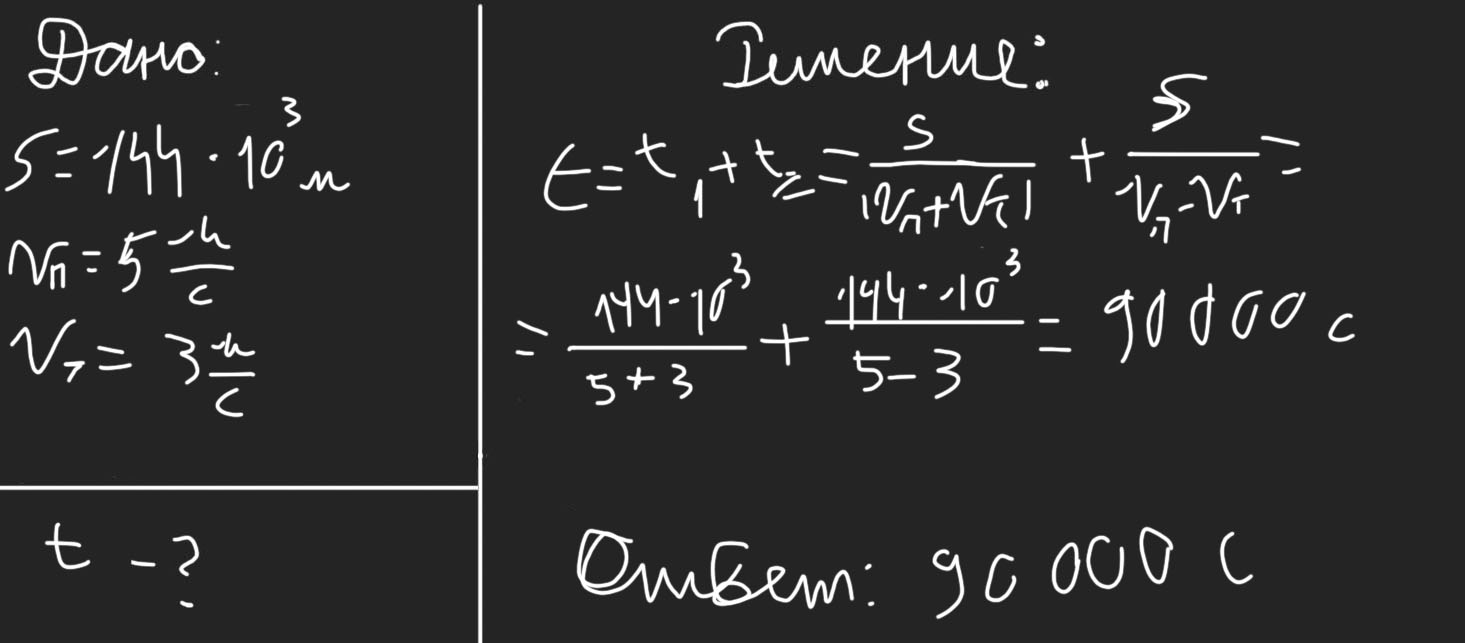 Дано:
S = 144 · 10³ м
Vп = 5 м/с
Vт = 3 м/с
t - ?
Решение:
t = t₁ + t₂ = S/|Vп + Vт| + S/Vп - Vт =
= 144 · 10³/5 + 3 + 144 · 10³/5 - 3 = 90 000 с
Ответ: 90 000 с